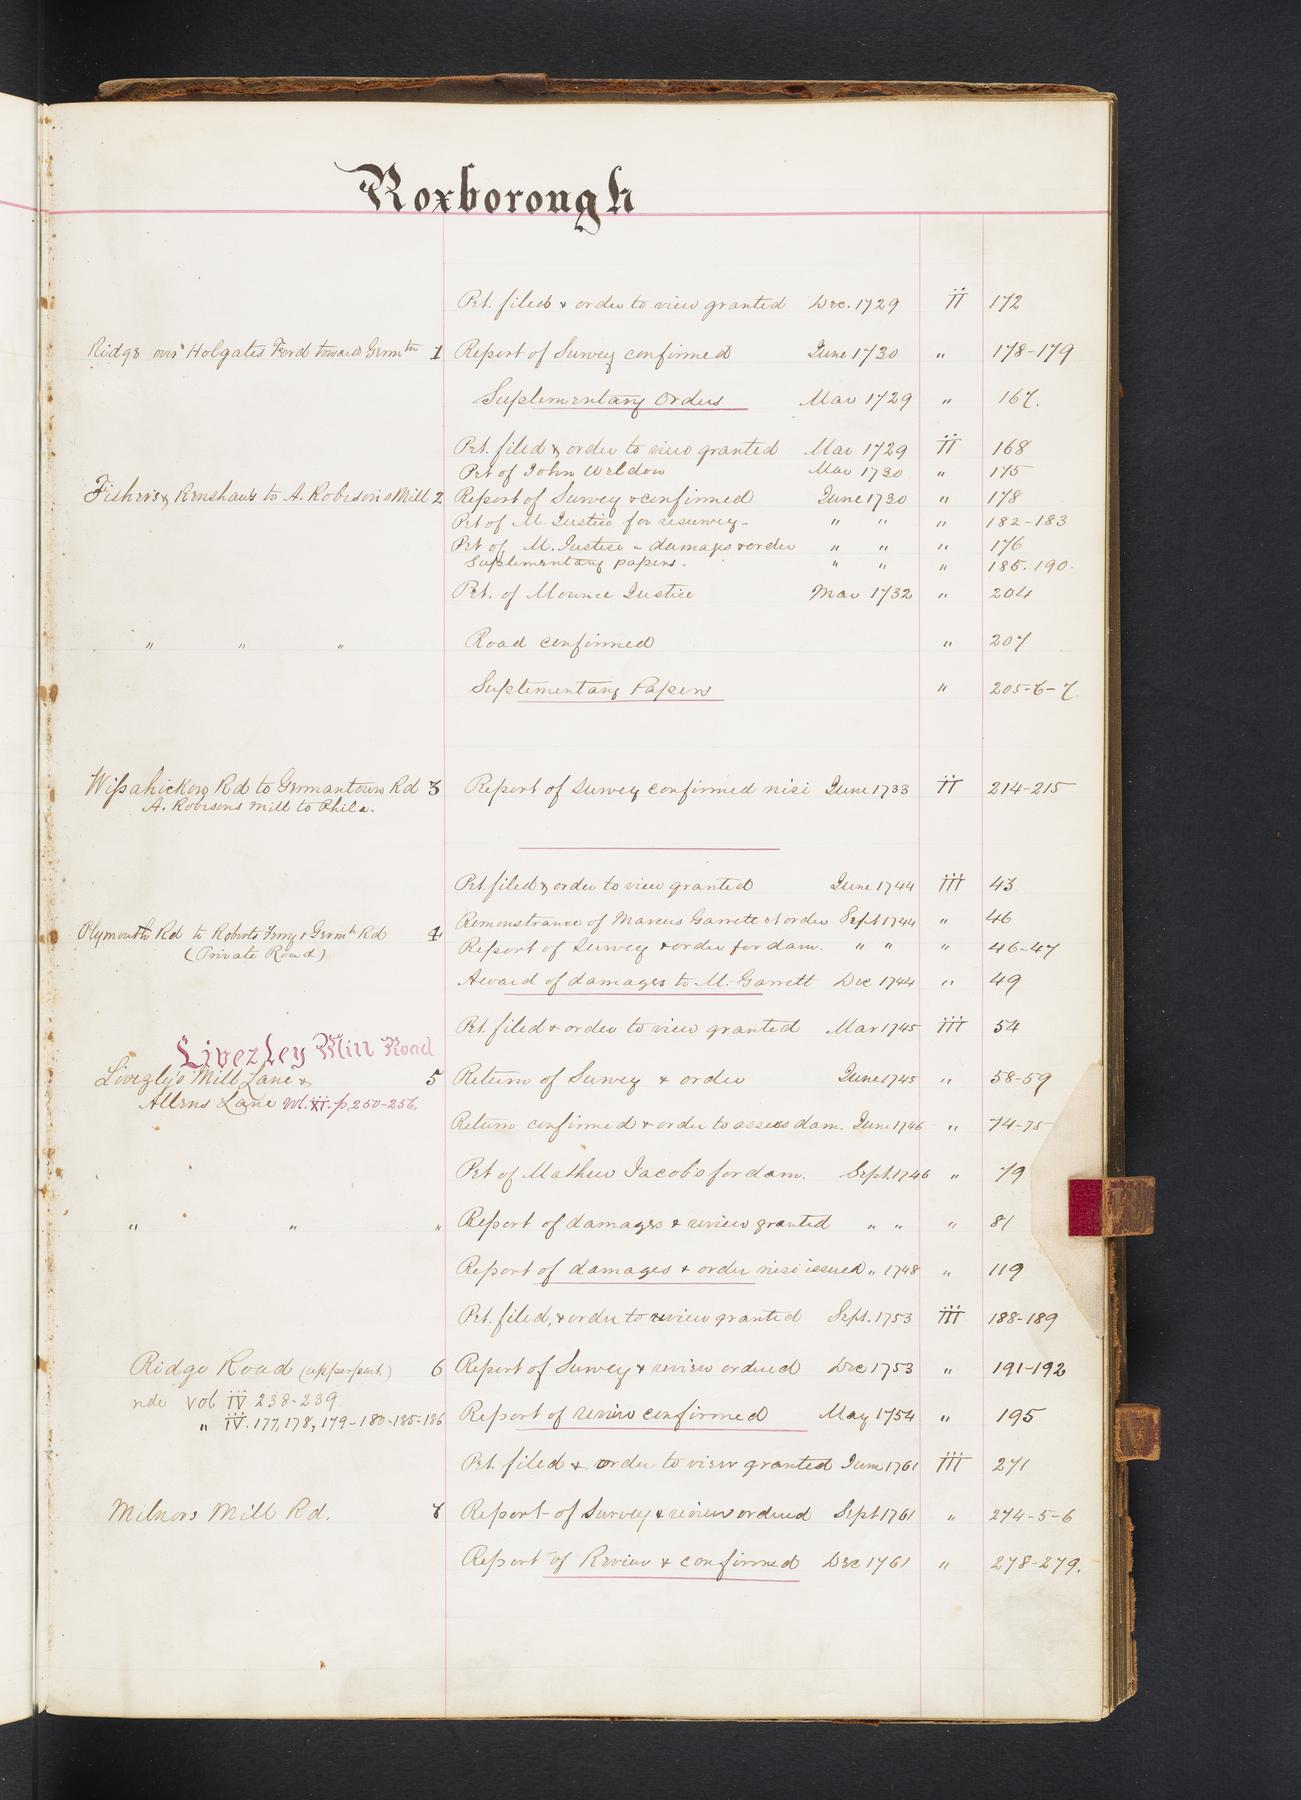 Roxborough
Pet. filed & order to view granted Dec. 1729 II 172
Ridge over Holgates Ford toward Germtn 1 Report of Survey confirmed June 1730 " 178-179
Suplementary Orders Mar 1729 " 167.
Pet. filed & order to view granted Mar 1729 II 168
Pet of John Weldon Mar 1730 " 175
Fishers & Renshaws to A. Robesons Mill 2 Report of Survey & confirmed June 1730 " 178
Pet of M. Justice for resurvey- " " " 182-183
Pet of M. Justice - damages & order " " " 176
Suplementary papers. " " " 185.190.
Pet. of Mounce Justice Mar 1732 " 204
" " " Road confirmed " 207
Suplementary Papers " 205-6-7
Wissahickon Rd to Germantown Rd 3 Report of Survey confirmed nisi June 1733 II 214-215
A. Robesons Mill to Phila.
Pet. filed & order to view granted June 1744 III 43
Remonstrance of Marcus Garrett & order Sept 1744 " 46
Plymouth Rd to Roberts Ferry & Germn Rd 4
(Private Road) Report of Survey & order for dam. " " " 46-47
Award of damages to M. Garrett Dec 1744 " 49
Pet. filed & order to view granted Mar 1745 III 54
Livezley Mill Road
Livezly's Mill Lane & 5 Return of Survey & order June 1745 " 58-59
Allens Lane vol. XI. p. 250-256.
Return confirmed & order to assess dam. June 1746 " 74-75
Pet of Mathew Jacobs for dam. Sept. 1746 " 79
" " " Report of damages & review granted " " " 81
Report of damages & order nisi issued " 1748 " 119
Pet. filed, & order to review granted Sept. 1753 III 188-189
Ridge Road (upper part.) 6 Report of Survey & review ordered Dec 1753 " 191-192
vide vol IV 238-239
" IV. 177, 178, 179-180-185-186 Report of review confirmed May 1754 " 195
Pet. filed & order to view granted June 1761 III 271
Milnors Mill Rd. 7 Report of Survey & review ordered Sept 1761 " 274-5-6
Report of Review & confirmed Dec 1761 " 278-279.